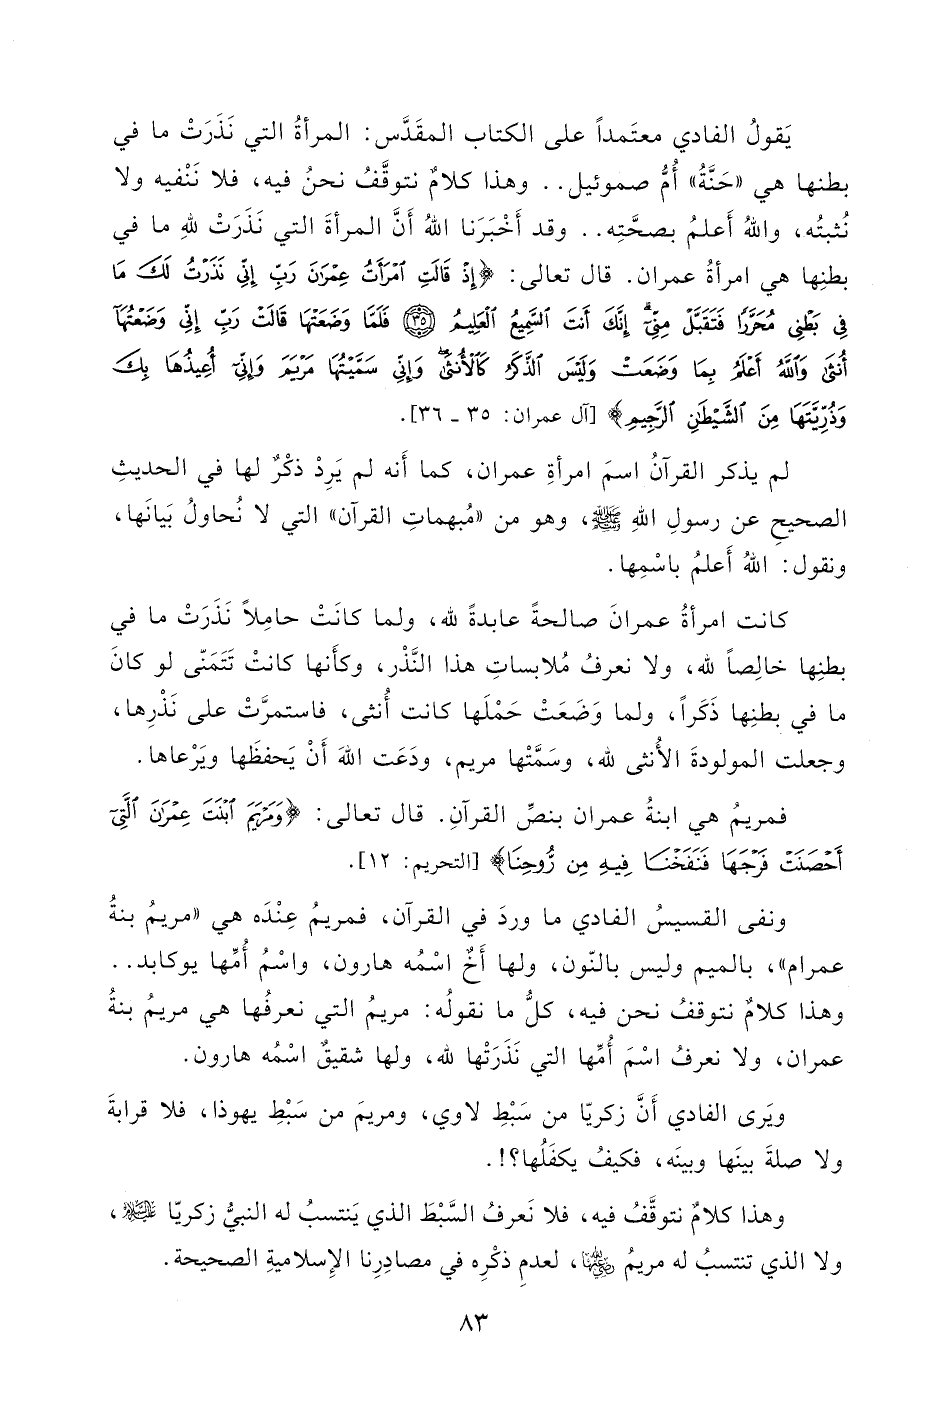 يَقولُ الفادي معتَمداً على الكتاب المقَدَّس: المرأةُ التي نَذَرَتْ ما في
بطنها هي «حَنَّةُ» أُمُّ صموئيل.. وهذا كلامٌ نتوقَّفُ نحنُ فيه، فلا نَنْفيه ولا
نُثبتُه، واللهُ أَعلمُ بصحَّتِه.. وقد أَخْبَرَنا اللهُ أَنَّ المرأةَ التي نَذَرَتْ للهِ ما في
بطنِها هي امرأةُ عمران. قال تعالى: ﴿إِذْ قَالَتِ ٱمْرَأَتُ عِمْرَٰنَ رَبِّ إِنِّي نَذَرْتُ لَكَ مَا
فِي بَطْنِي مُحَرَّرًا فَتَقَبَّلْ مِنِّيٓۖ إِنَّكَ أَنتَ ٱلسَّمِيعُ ٱلْعَلِيمُ ۝٣٥ فَلَمَّا وَضَعَتْهَا قَالَتْ رَبِّ إِنِّي وَضَعْتُهَآ
أُنثَىٰ وَٱللَّهُ أَعْلَمُ بِمَا وَضَعَتْ وَلَيْسَ ٱلذَّكَرُ كَٱلْأُنثَىٰۖ وَإِنِّي سَمَّيْتُهَا مَرْيَمَ وَإِنِّيٓ أُعِيذُهَا بِكَ
وَذُرِّيَّتَهَا مِنَ ٱلشَّيْطَٰنِ ٱلرَّجِيمِ﴾ [آل عمران: ٣٥ ـ ٣٦].
لم يذكر القرآنُ اسمَ امرأةِ عمران، كما أَنه لم يَرِدْ ذكْرٌ لها في الحديثِ
الصحيحِ عن رسولِ اللهِ ﷺ، وهو من «مُبهماتِ القرآن» التي لا نُحاولُ بَيانَها،
ونقول: اللهُ أَعلمُ باسْمِها.
كانت امرأةُ عمرانَ صالحةً عابدةً لله، ولما كانَتْ حامِلاً نَذَرَتْ ما في
بطنِها خالِصاً لله، ولا نعرفُ مُلابساتِ هذا النَّذْر، وكأَنها كانتْ تَتَمَنّى لو كانَ
ما في بطنِها ذَكَراً، ولما وَضَعَتْ حَمْلَها كانت أُنثى، فاستمرَّتْ على نَذْرِها،
وجعلت المولودةَ الأُنثى لله، وسَمَّتْها مريم، ودَعَت اللهَ أَنْ يَحفظَها ويَرْعاها.
فمريمُ هي ابنةُ عمران بنصِّ القرآنِ. قال تعالى: ﴿وَمَرْيَمَ ٱبْنَتَ عِمْرَٰنَ ٱلَّتِيٓ
أَحْصَنَتْ فَرْجَهَا فَنَفَخْنَا فِيهِ مِن رُّوحِنَا﴾ [التحريم: ١٢].
ونفى القسيسُ الفادي ما وردَ في القرآن، فمريمُ عِنْدَه هي «مريمُ بنةُ
عمرام»، بالميم وليس بالنّون، ولها أَخٌ اسْمُه هارون، واسْمُ أُمِّها يوكابد..
وهذا كلامٌ نتوقفُ نحن فيه، كلُّ ما نقولُه: مريمُ التي نعرفُها هي مريمُ بنةُ
عمران، ولا نعرفُ اسْمَ أُمِّها التي نَذَرَتْها لله، ولها شقيقٌ اسْمُه هارون.
ويَرى الفادي أَنَّ زكريّا من سَبْطِ لاوي، ومريمَ من سَبْطِ يهوذا، فلا قرابةَ
ولا صلةَ بينَها وبينَه، فكيفُ يكفَلُها؟!.
وهذا كلامٌ نتوقَّفُ فيه، فلا نَعرفُ السَّبْطَ الذي يَنتسبُ له النبيُّ زكريّا عليه السلام،
ولا الذي تنتسبُ له مريمُ رضي الله عنها، لعدمِ ذكْرِه في مصادِرِنا الإِسلاميةِ الصحيحة.
٨٣